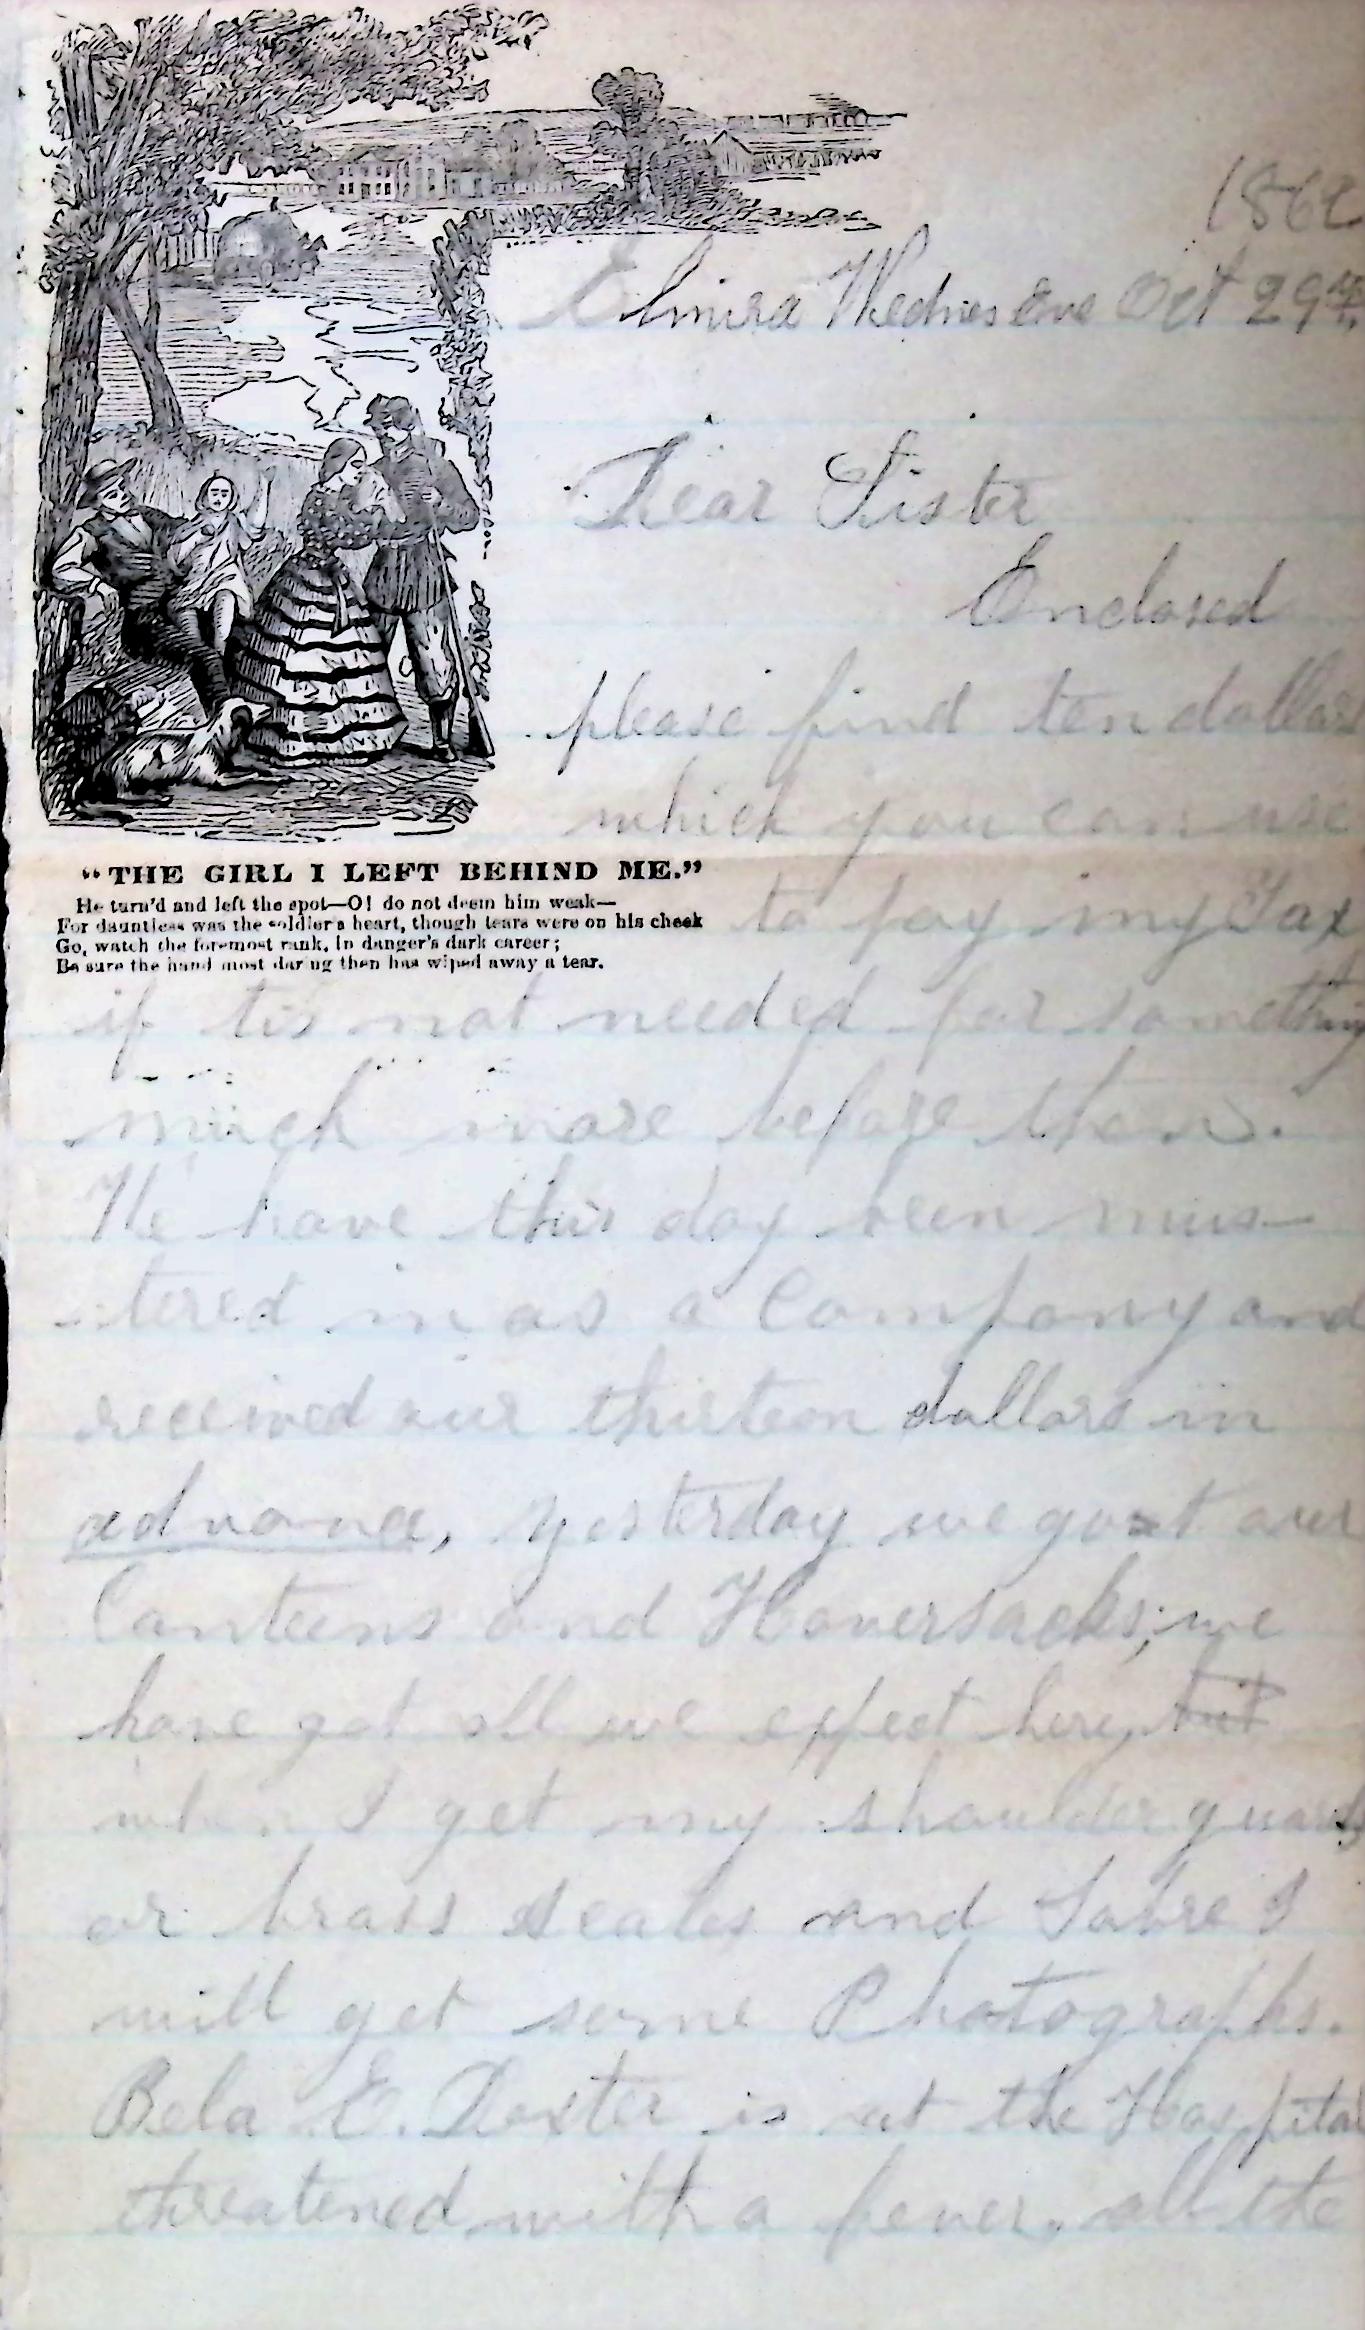 1862
Elmira Wednes Eve Oct 29th
Dear Sister
Enclosed
please find ten dollars
which you can use
"THE GIRL I LEFT BEHIND ME."
He turn'd and left the spot—O! do not deem him weak—
For dauntless was the soldier's heart, though tears were on his cheek
Go, watch the foremost rank, in danger's dark career;
Be sure the hand most daring then has wiped away a tear.
to pay my Tax
if tis not needed for something
much more before then.
We have this day been mus-
tered in as a Company and
received our thirteen dollars in
advance, Yesterday we got our
Canteens and Haversacks; we
have got all we expect here, but
when I get my shoulder guards
or brass scales and Sabre I
will get some Photographs.
Bela E. Dexter is at the Hospital
threatened with a fever. all the